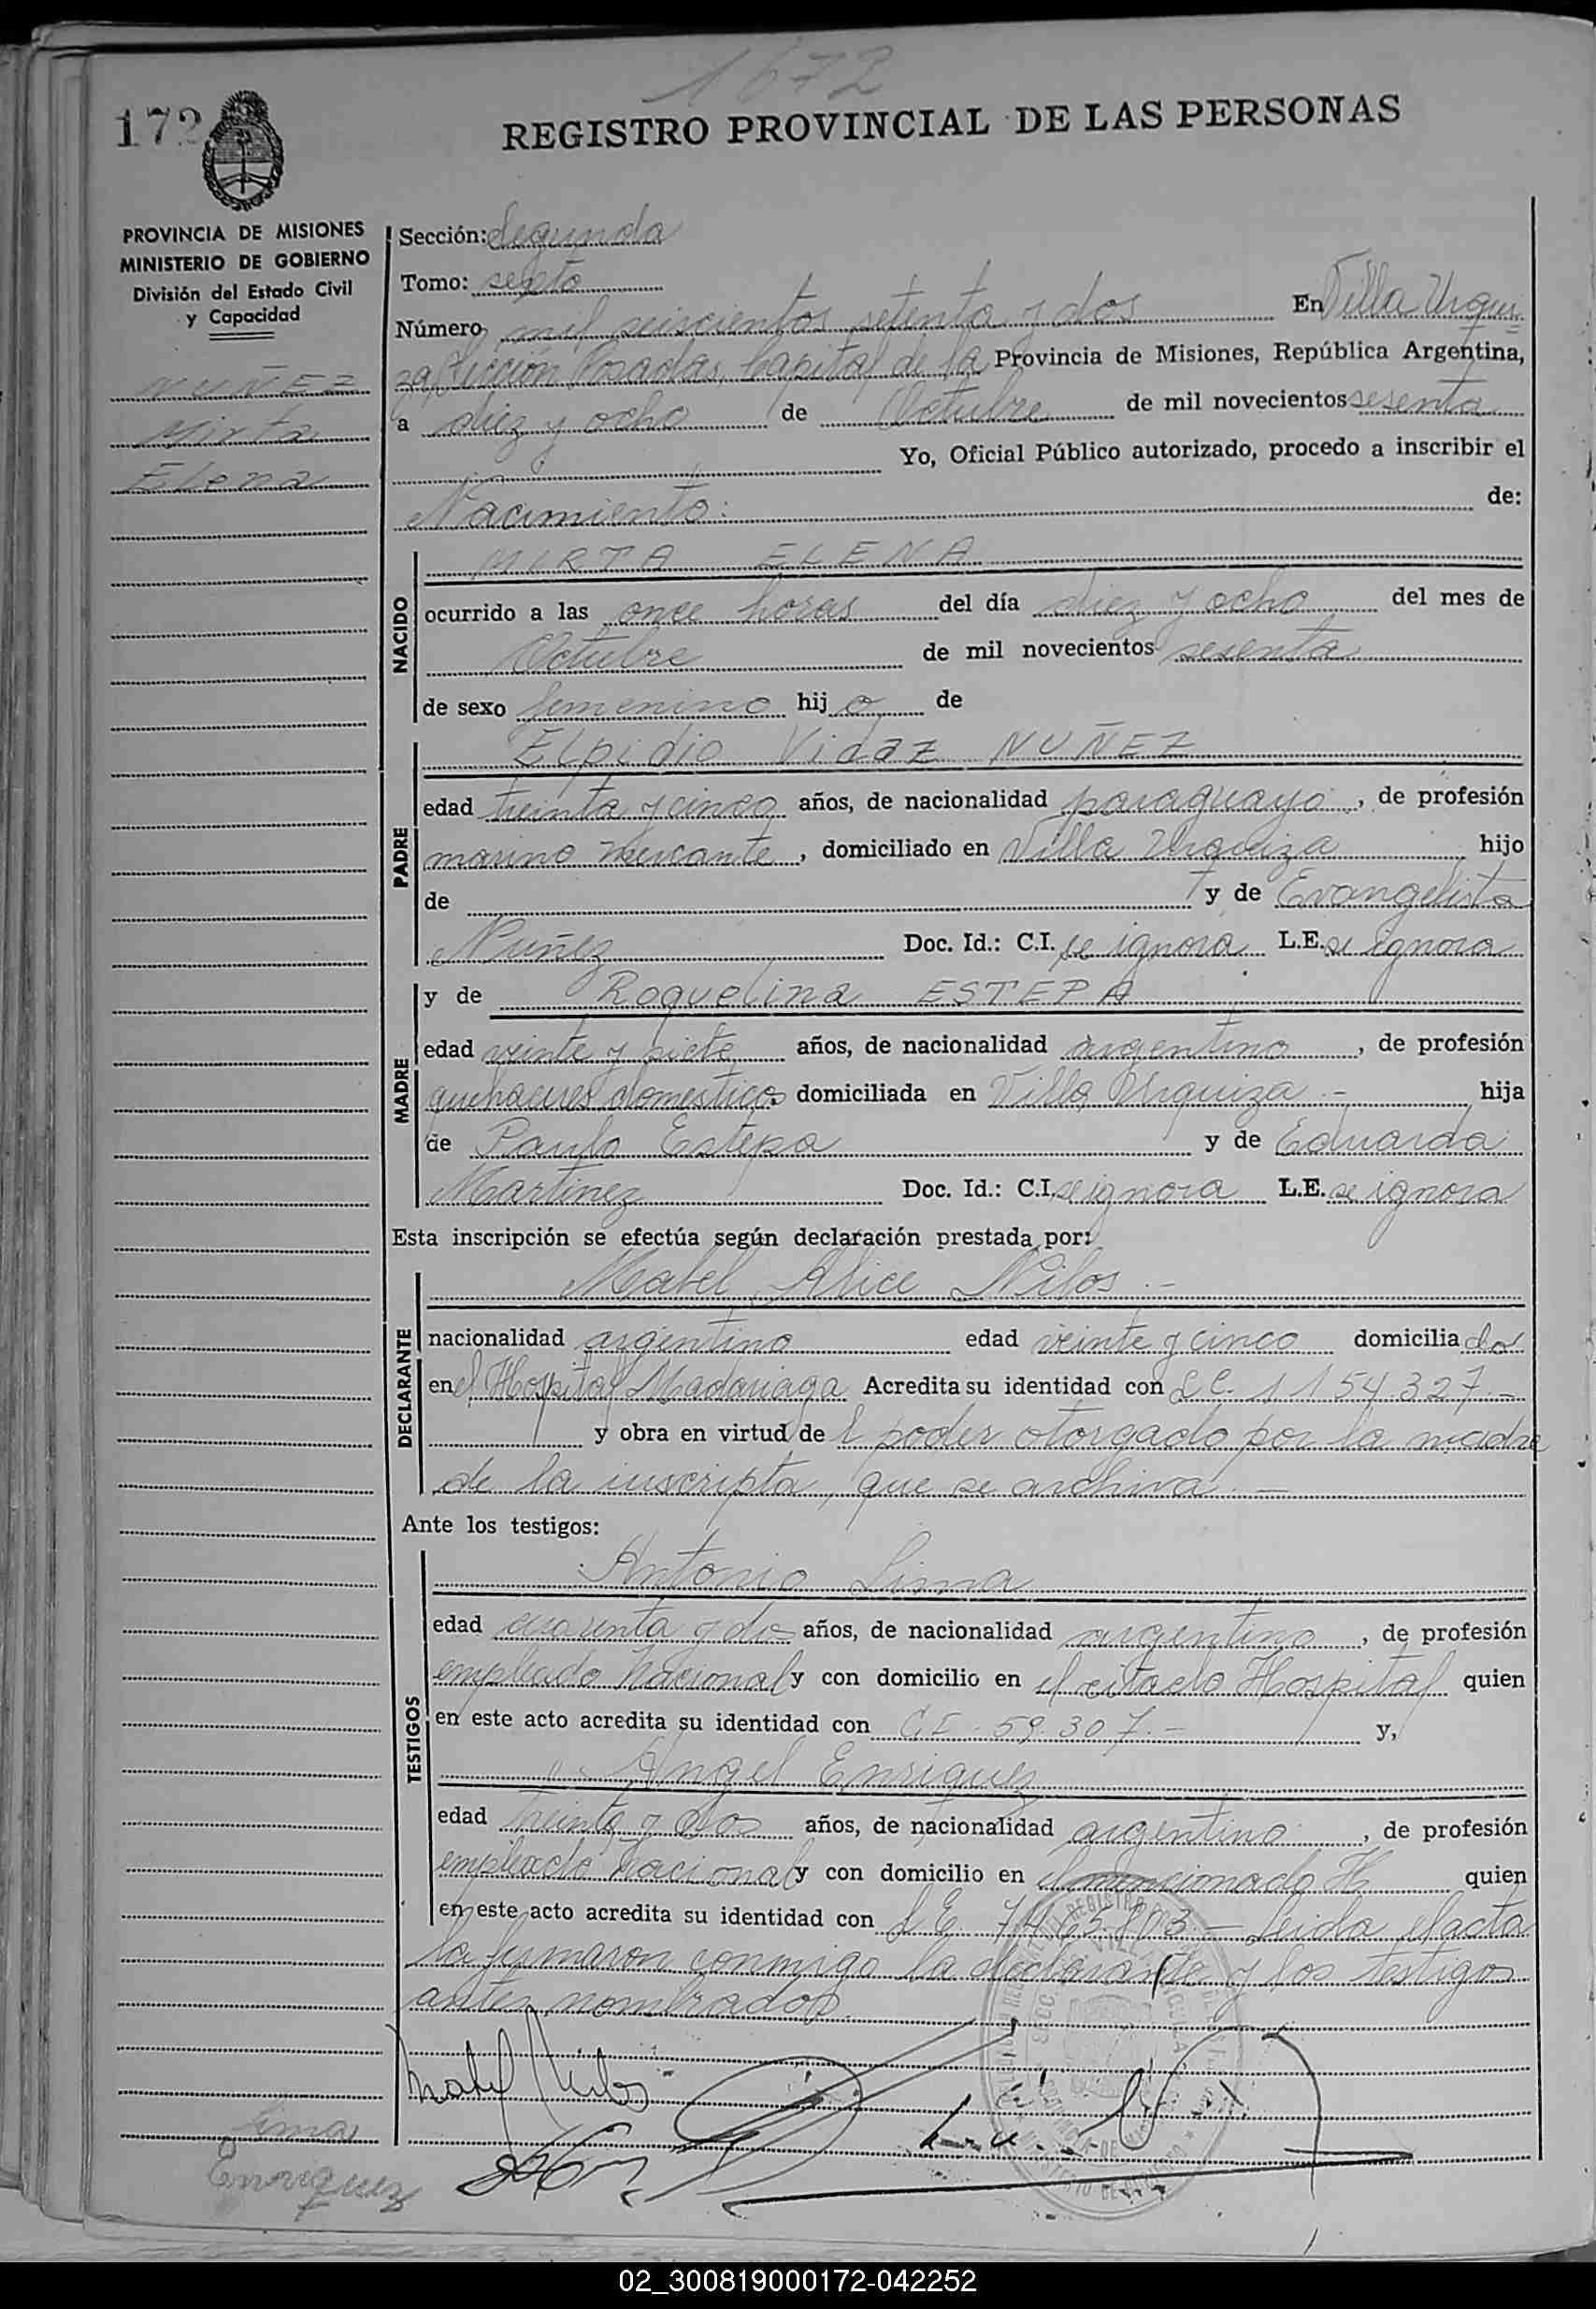 1672
172
REGISTRO PROVINCIAL DE LAS PERSONAS
PROVINCIA DE MISIONES
MINISTERIO DE GOBIERNO
División del Estado Civil
y Capacidad
NUÑEZ
Mirta
Elena
Sección: Segunda
Tomo: sexto
Número mil seiscientos setenta y dos En Villa Urqui
za, Posadas, Capital de la Provincia de Misiones, República Argentina,
a diez y ocho de Octubre de mil novecientos sesenta
Yo, Oficial Público autorizado, procedo a inscribir el
Nacimiento: de:
NACIDO
MIRTA ELENA
ocurrido a las once horas del día diez y ocho del mes de
Octubre de mil novecientos sesenta
de sexo femenino hij a de
PADRE
Elpidio Vidaz NUÑEZ
edad treinta y cinco años, de nacionalidad paraguayo, de profesión
marino mercante, domiciliado en Villa Urquiza hijo
de y de Evangelista
Nuñez Doc. Id.: C.I. se ignora L.E. se ignora
MADRE
y de Roquelina ESTEPA
edad veinte y siete años, de nacionalidad argentina, de profesión
quehaceres domesticos domiciliada en Villa Urquiza - hija
de Paulo Estepa y de Eduarda
Martinez Doc. Id.: C.I. se ignora L.E. se ignora
Esta inscripción se efectúa según declaración prestada por:
DECLARANTE
Mabel Alice Nilos .-
nacionalidad argentina edad veinte y cinco domicilia da
en el Hospital Madariaga Acredita su identidad con L.C. 1154.327.-
y obra en virtud de l poder otorgado por la madre
de la inscripta, que se archiva. -
Ante los testigos:
TESTIGOS
Antonio Lima
edad cuarenta y dos años, de nacionalidad argentino, de profesión
empleado nacional y con domicilio en el citado Hospital quien
en este acto acredita su identidad con C.I. 59.307.- y,
Angel Enriquez
edad treinta y dos años, de nacionalidad argentino, de profesión
empleado nacional y con domicilio en el mencionado H. quien
en este acto acredita su identidad con L.E. - Leida el acta
la firmaron conmigo la declarante y los testigos
antes nombrados
Mabel Nilos
Lima
Enriquez
02_300819000172-042252